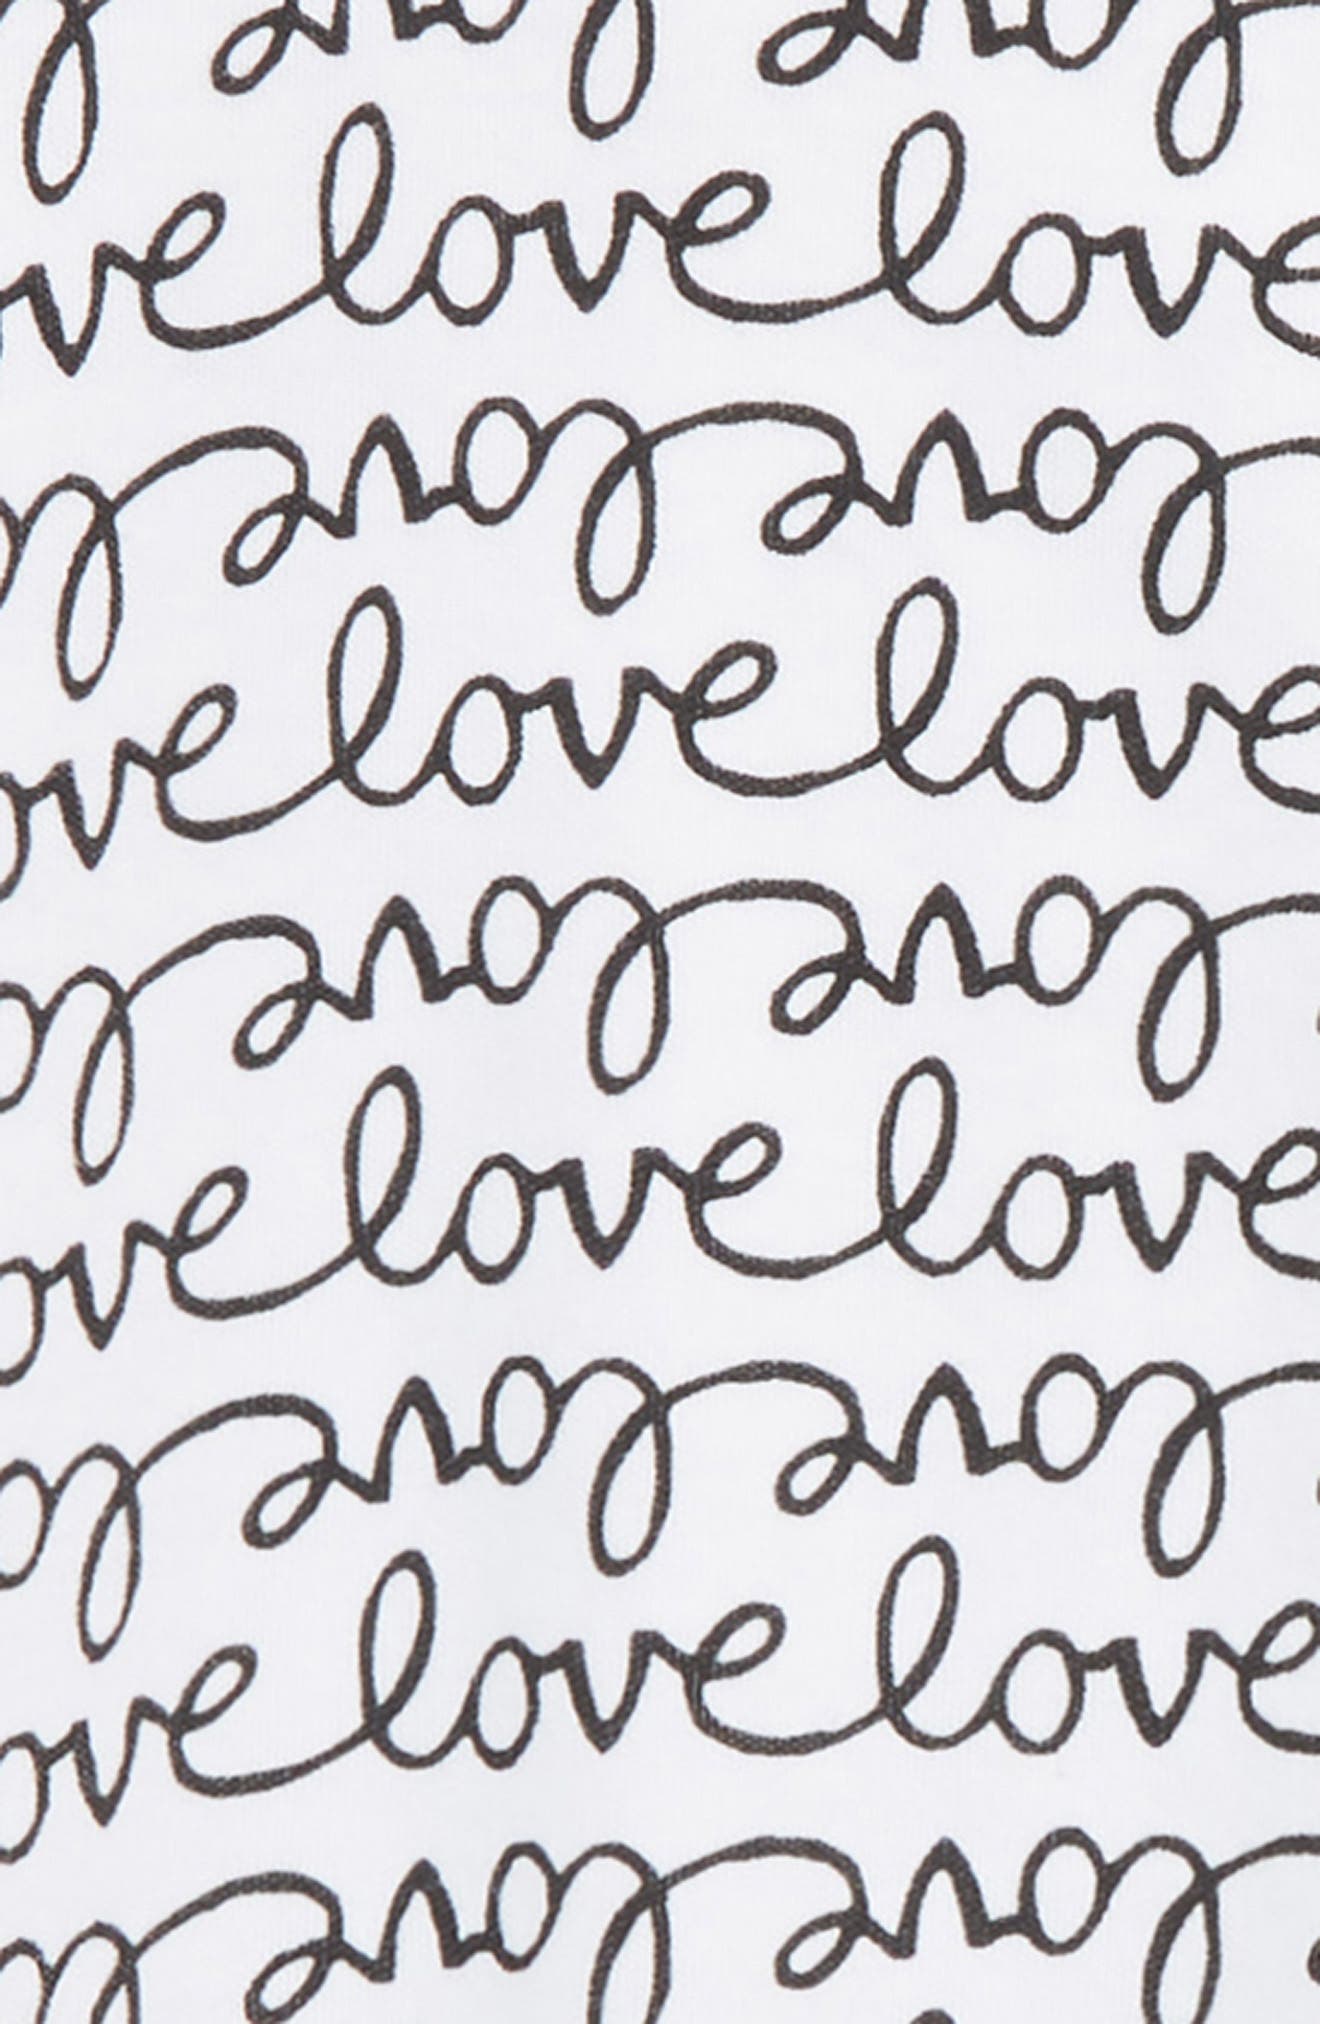 love love l
ve love love
love love lo
ove love love
love love lo
ove love love
love love lo
ove love love
love love lo